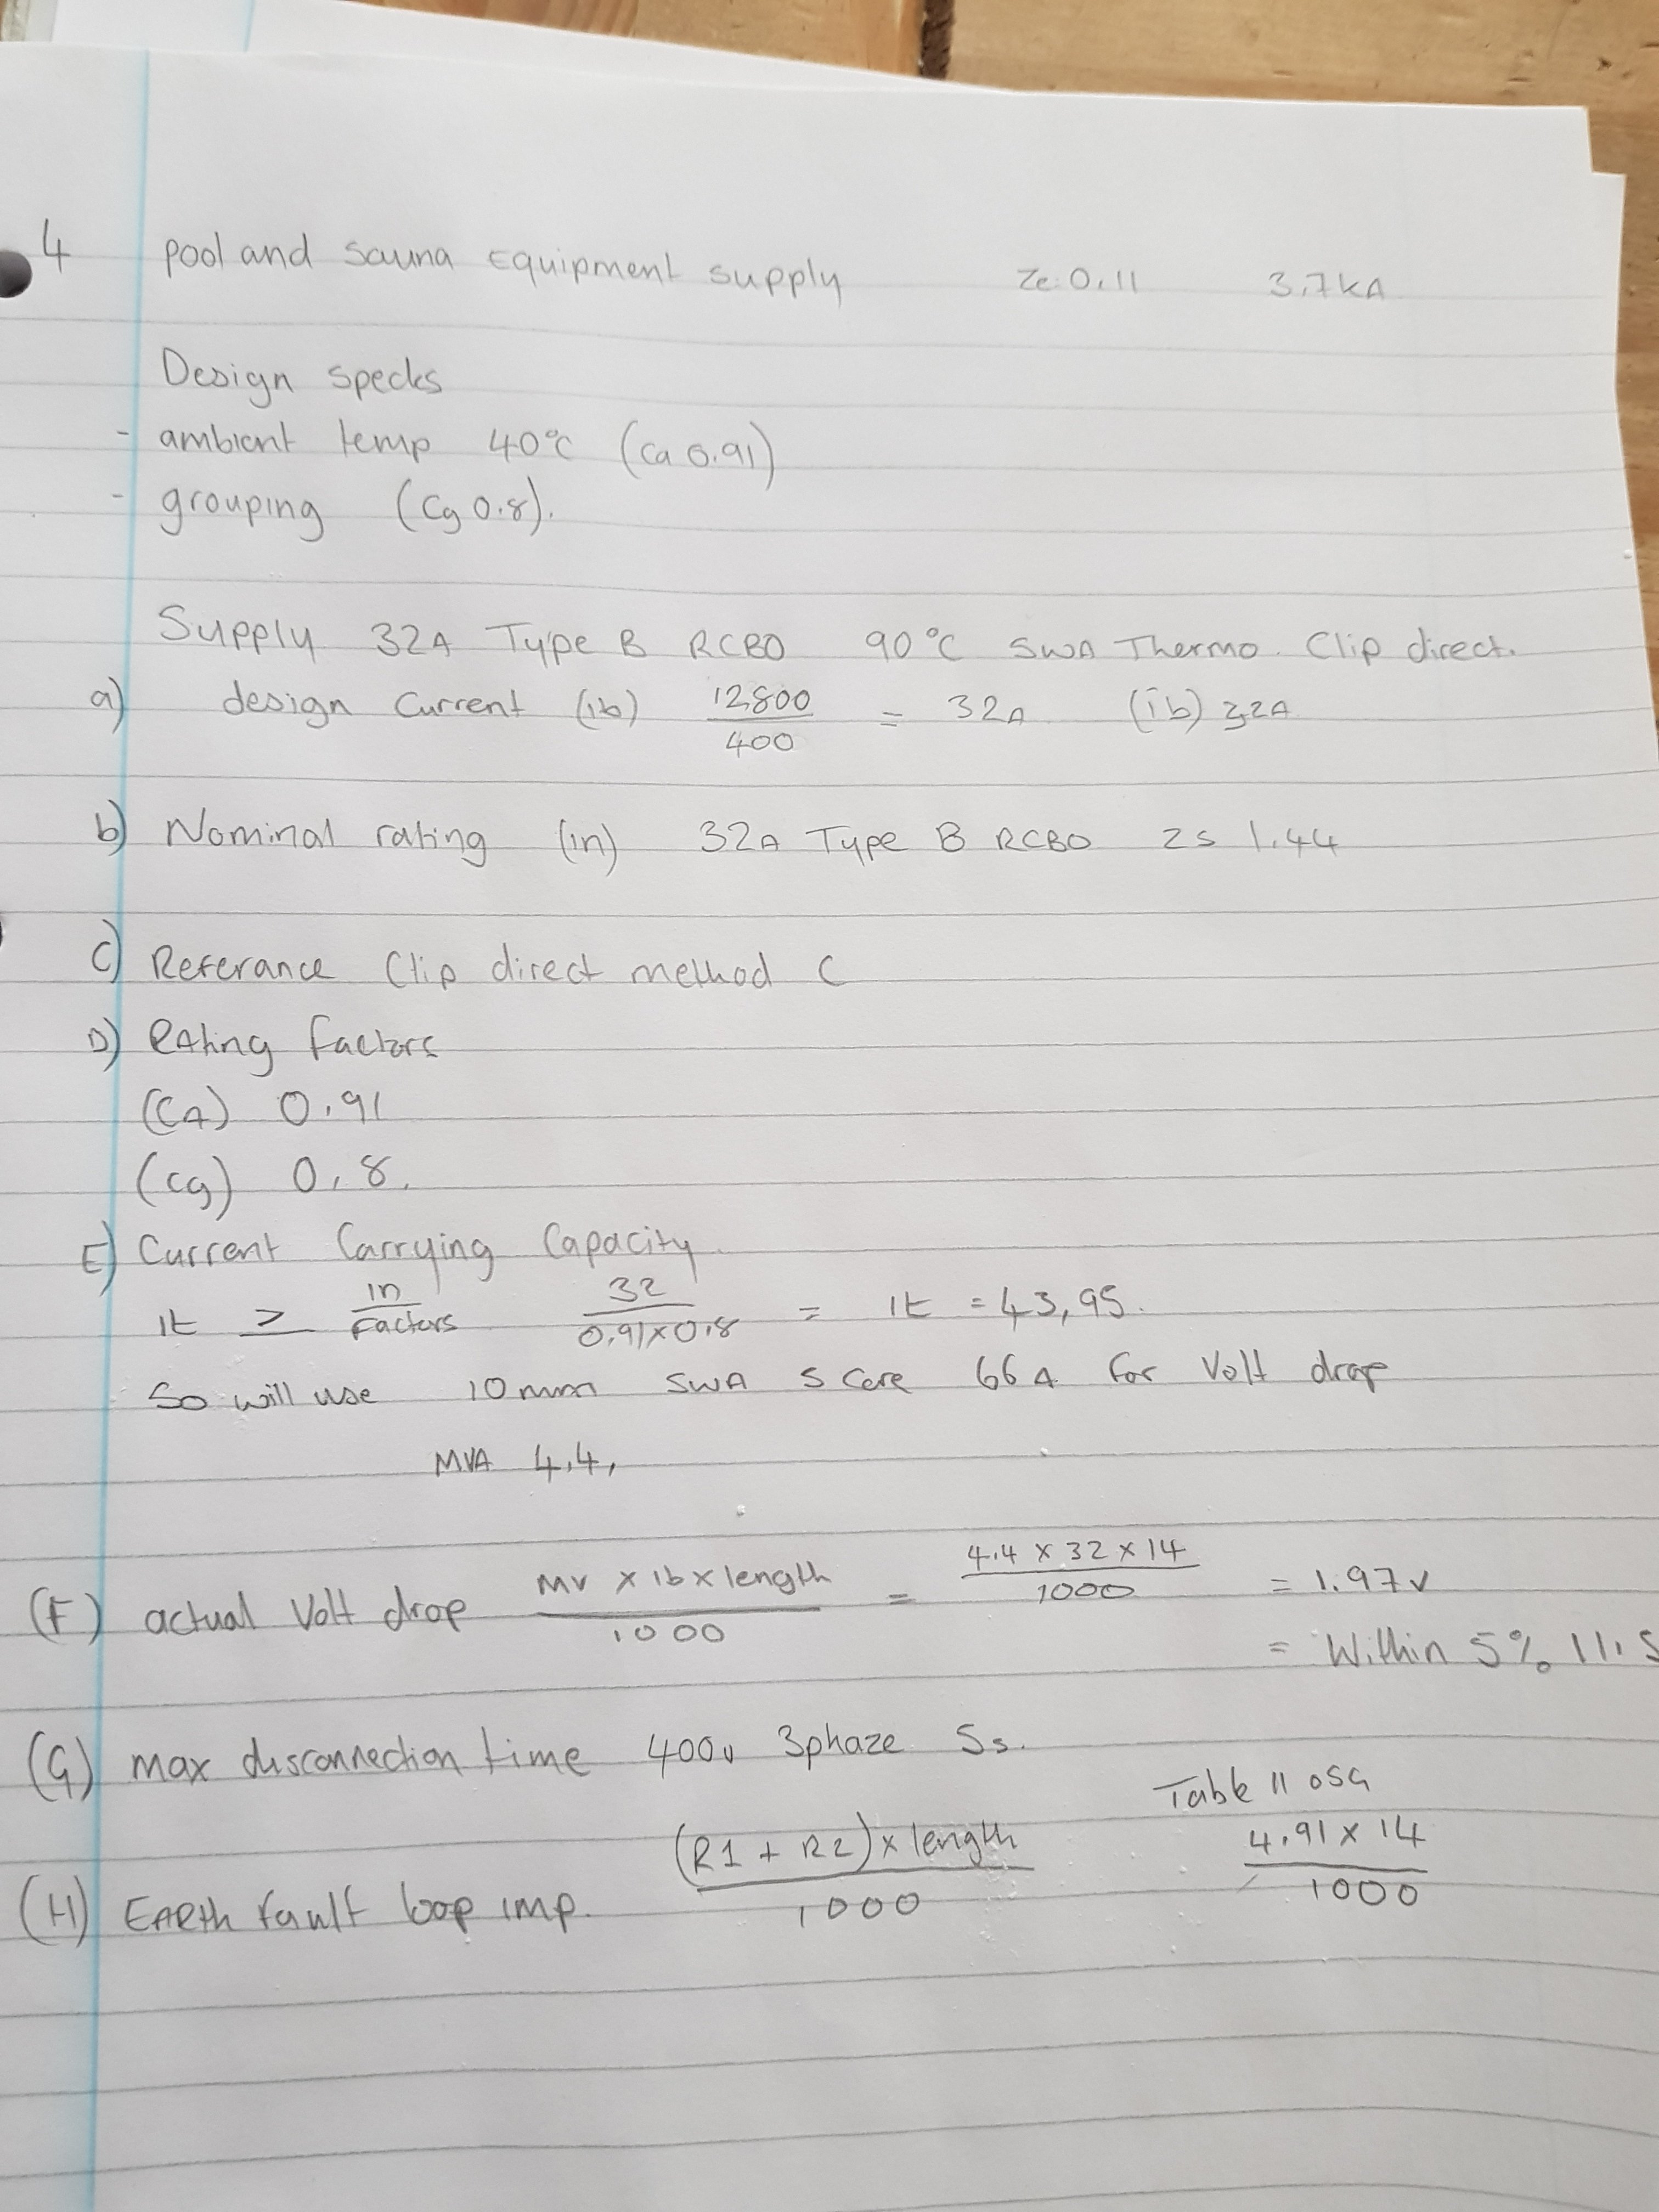 4 pool and sauna Equipment supply Ze 0.11 3.7kA
Design specks
- ambient temp 40°C (Ca 0.91)
- grouping (Cg 0.8).
Supply 32A Type B RCBO 90°C SWA Thermo. Clip direct.
a) design Current (ib) 12800/400 = 32A (ib) 32A
b) Nominal rating (in) 32A Type B RCBO Zs 1.44
C) Referance Clip direct method C
D) RAting factors
(CA) 0.91
(cg) 0.8.
E) Current Carrying Capacity.
It ≥ in/Factors 32/0.91x0.8 = It = 43,95.
So will use 10mm SWA 5 Core 66A for Volt drop
MVA 4.4,
(F) actual Volt drop MV x Ib x length/1000 = 4.4 x 32 x 14/1000 = 1.97v
= Within 5% 11.5
(G) max disconnection time 400v 3phaze 5s.
Table 11 OSG
(H) EARth fault loop imp. (R1 + R2) x length/1000 4.91 x 14/1000